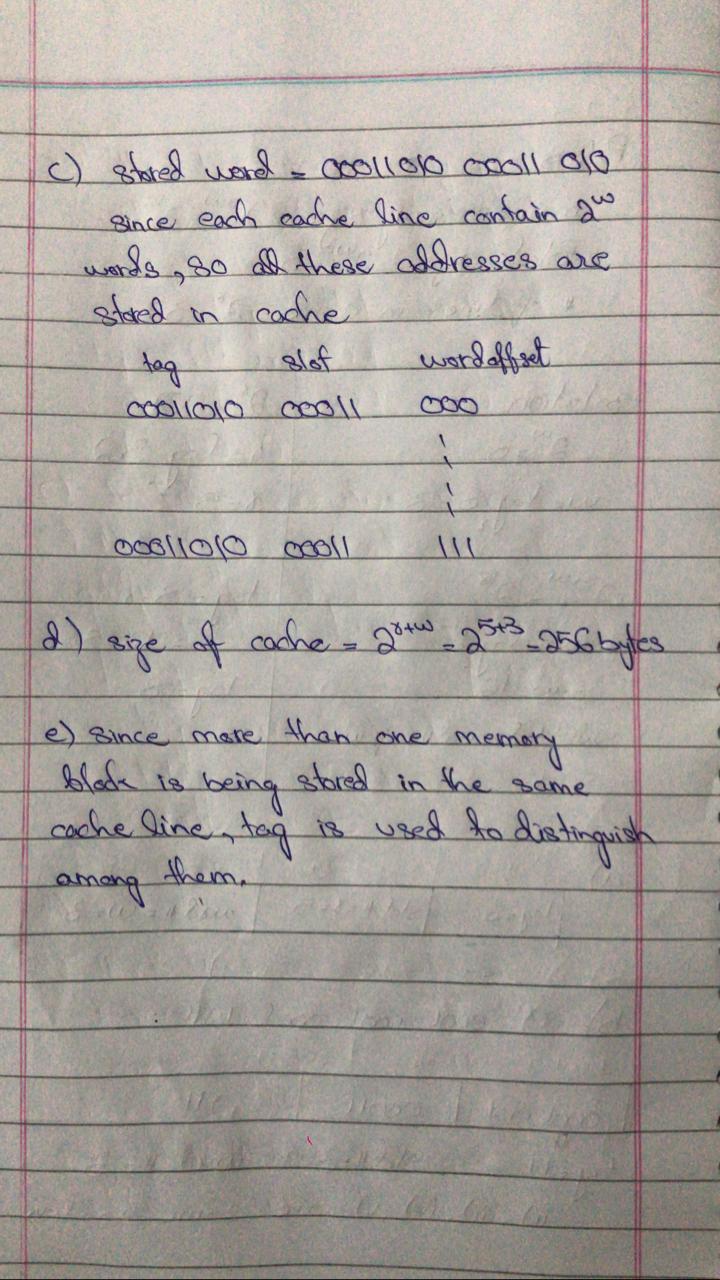 c) stored word = 00011010 00011 010
since each cache line contain 2^w
words, so all these addresses are
stored in cache
tag slot word offset
00011010 00011 000
00011010 00011 111
d) size of cache = 2^r+w = 2^5+3 = 256 bytes
e) since more than one memory
block is being stored in the same
cache line, tag is used to distinguish
among them.